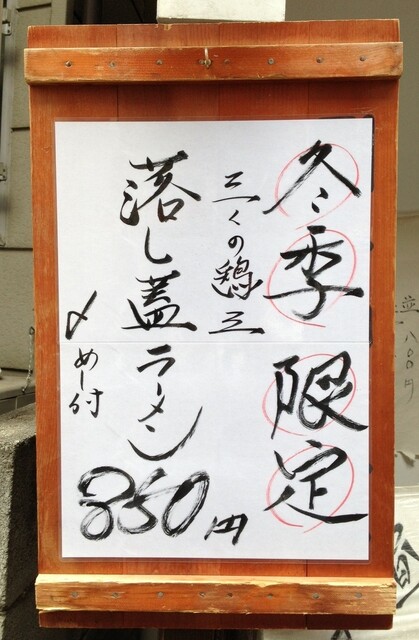 冬季限定
三くの鶏三
落し蓋ラーメン
850円
〆めし付